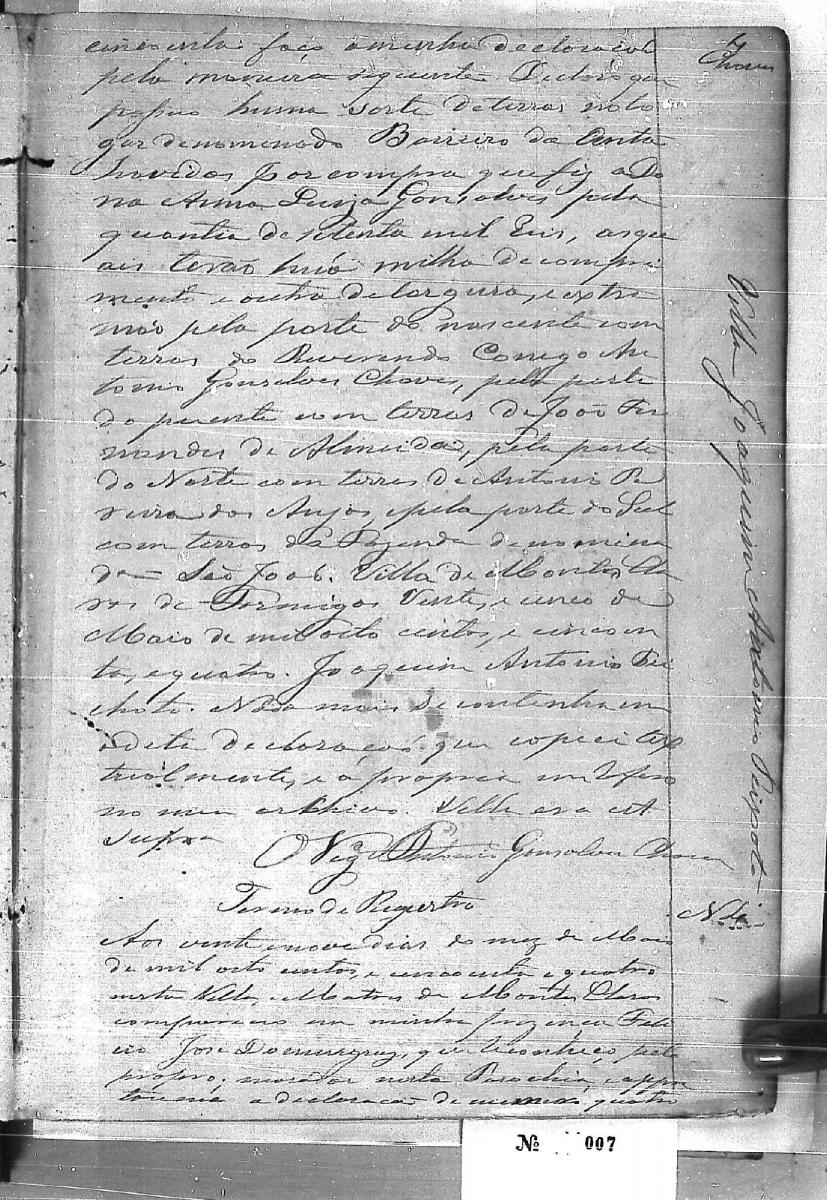 4
Chaves
cincoenta: faço a minha declaracaõ
pela maneira seguinte. Declaro que
possuo huma sorte de terras no lo
gar denominado Barreiro da Anta
havidas por compra que fiz a Do
na Anna Luiza Gonsalves pela
quantia de setenta mil reis, as qu
ais teraõ huã milha de compri
mento e outra de largura, e extre
maõ pela parte do nascente com
terras do Reverendo Conego An
tonio Gonsalves Chaves, pela parte
do poente com terras de João Fer
nandes de Almeida, pela parte
do Norte com terras de Antonio Pe
reira dos Anjos, e pela parte do Sul
com terras da Fazenda denomina
da São João. Villa de Montes Cla
ros de Formigas Vinte, e cinco de
Maio de mil oito centos, e cincoen
ta, e quatro. Joaquim Antonio Pei
choto. Nada mais se continha em
a dita declaracaõ que copiei tex
tualmente, e a propria
no meu archivo. Villa era ut
supra
O Vigº Antonio Gonsalves Chaves
Villa Joaquim Antonio Peixoto
Termo de Registro
Aos vinte e nove dias do mez de Maio
de mil oito centos, e cincoenta e quatro
nesta Villa, e Matriz de Montes Claros
compareceo em minha prezença Feli
cio José Domingues, que reconheço pelo
proprio, morador nesta Parochia, e appre
a declaração de numero quatro
Nº 007